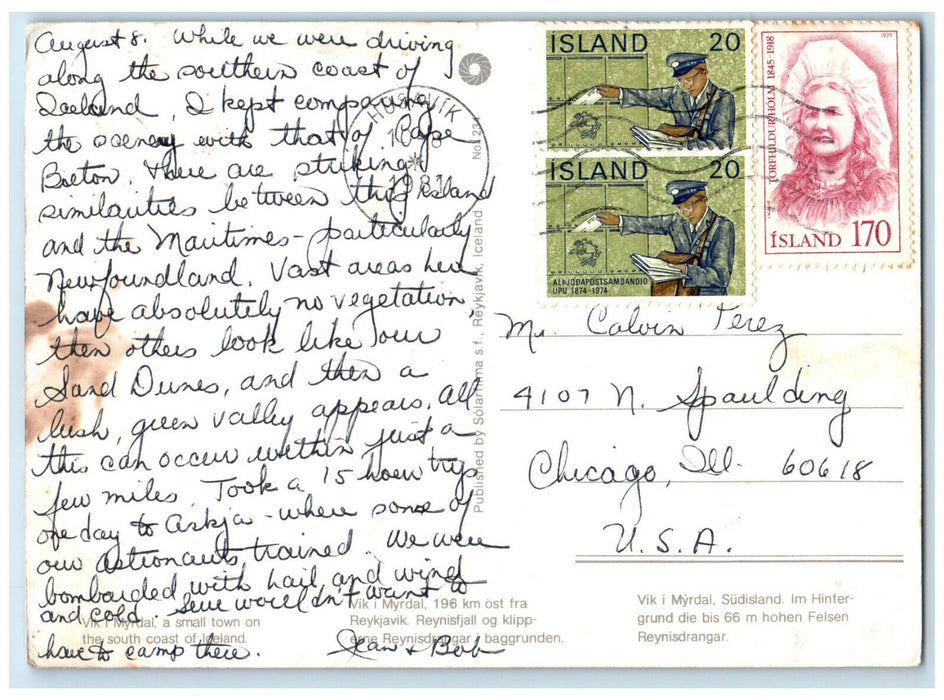 August 8. While we were driving
along the southern coast of
Iceland, I kept comparing
the scenery with that of Cape
Breton. There are striking
similarities between this island
and the Maritimes - particularly
Newfoundland. Vast areas here
have absolutely no vegetation,
then others look like our
Sand Dunes, and then a
lush, green valley appears. All
this can occur within just a
few miles. Took a 15 hour trip
one day to Askja - where some of
our astronauts trained. We were
bombarded with hail and wind
and cold. Sure wouldn't want to
have to camp there. Jean & Bob
Vik i Myrdal, a small town on
the south coast of Iceland.
Vik i Myrdal, 196 km öst fra
Reykjavik. Reynisfjall og klipp-
erne Reynisdrangar i baggrunden.
Published by Solarfilma s.f., Reykjavik, Iceland
HÚSAVÍK
ISLAND 20
ISLAND 20
ALÞJÓÐAPÓSTSAMBANDIÐ
UPU 1874-1974
TORFHILDUR HÓLM 1845-1918
1979
ÍSLAND 170
Mr. Calvin Perez
4107 N. Spaulding
Chicago, Ill. 60618
U.S.A.
Vik i Mýrdal, Südisland. Im Hinter-
grund die bis 66 m hohen Felsen
Reynisdrangar.